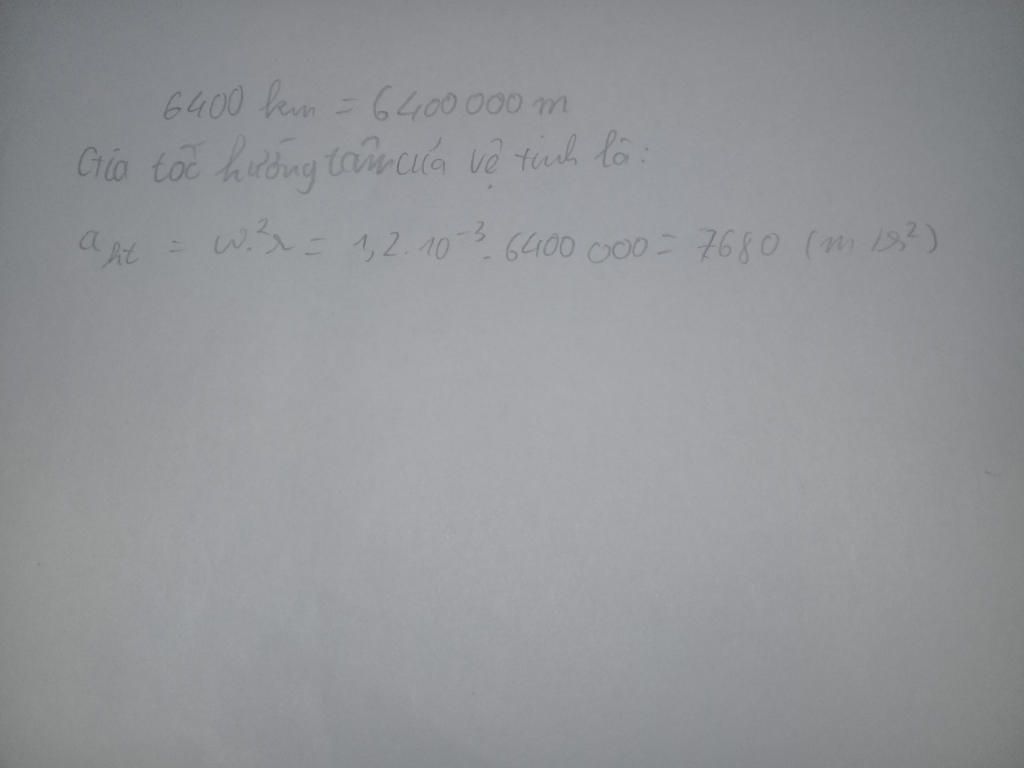 6400 km = 6400 000 m
Gia tốc hướng tâm của vệ tinh là:
a ht = ω.²r = 1,2.10⁻³. 6400 000 = 7680 (m/s²)